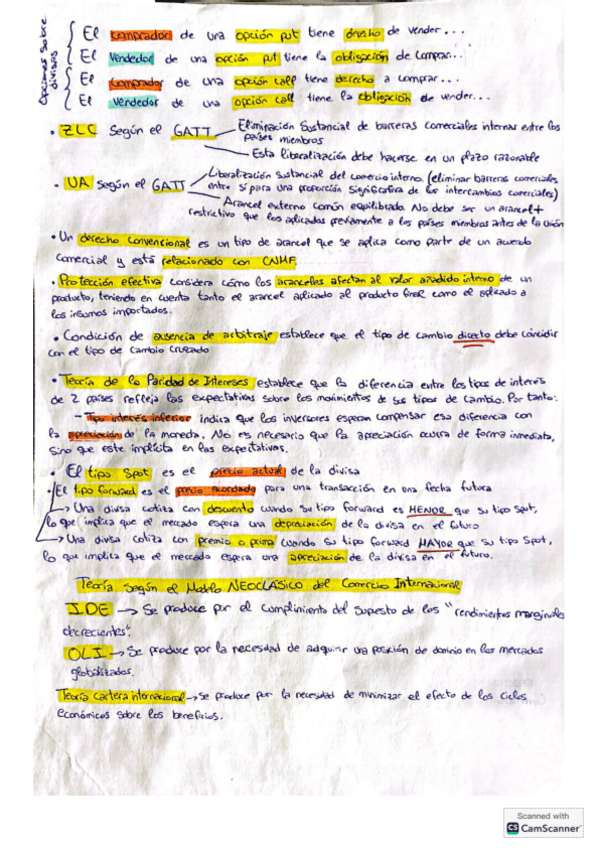 Opciones sobre divisas
El comprador de una opción put tiene derecho de vender...
El vendedor de una opción put tiene la obligación de comprar...
El comprador de una opción call tiene derecho a comprar...
El vendedor de una opción call tiene la obligación de vender...
• ZLC según el GATT
Eliminación sustancial de barreras comerciales internas entre los
países miembros
Esta liberalización debe hacerse en un plazo razonable
• UA según el GATT
Liberalización sustancial del comercio interno. (eliminar barreras comerciales
entre sí para una proporción significativa de los intercambios comerciales)
Arancel externo común equilibrado. No debe ser un arancel +
restrictivo que los aplicados previamente a los países miembros antes de la unión
• Un derecho convencional es un tipo de arancel que se aplica como parte de un acuerdo
comercial y está relacionado con CNMF.
• Protección efectiva considera cómo los aranceles afectan al valor añadido interno de un
producto, teniendo en cuenta tanto el arancel aplicado al producto final como el aplicado a
los insumos importados.
• Condición de ausencia de arbitraje establece que el tipo de cambio directo debe coincidir
con el tipo de cambio cruzado
• Teoría de la Paridad de Intereses establece que la diferencia entre los tipos de interés
de 2 países refleja las expectativas sobre los movimientos de sus tipos de cambio. Por tanto:
- Tipo interés inferior indica que los inversores esperan compensar esa diferencia con
la apreciación de la moneda. No es necesario que la apreciación ocurra de forma inmediata,
sino que este implícita en las expectativas.
• El tipo spot es el precio actual de la divisa
• El tipo forward es el precio acordado para una transacción en una fecha futura
→ Una divisa cotiza con descuento cuando su tipo forward es MENOR que su tipo spot,
lo que implica que el mercado espera una depreciación de la divisa en el futuro
→ Una divisa cotiza con premio o prima cuando su tipo forward MAYOR que su tipo spot,
lo que implica que el mercado espera una apreciación de la divisa en el futuro.
Teoría según el Modelo NEOCLÁSICO del Comercio Internacional
IDE → Se produce por el cumplimiento del supuesto de los "rendimientos marginales
decrecientes".
OLI → Se produce por la necesidad de adquirir una posición de dominio en los mercados
globalizados.
Teoría cartera internacional → se produce por la necesidad de minimizar el efecto de los ciclos
económicos sobre los beneficios.
Scanned with
CS CamScanner